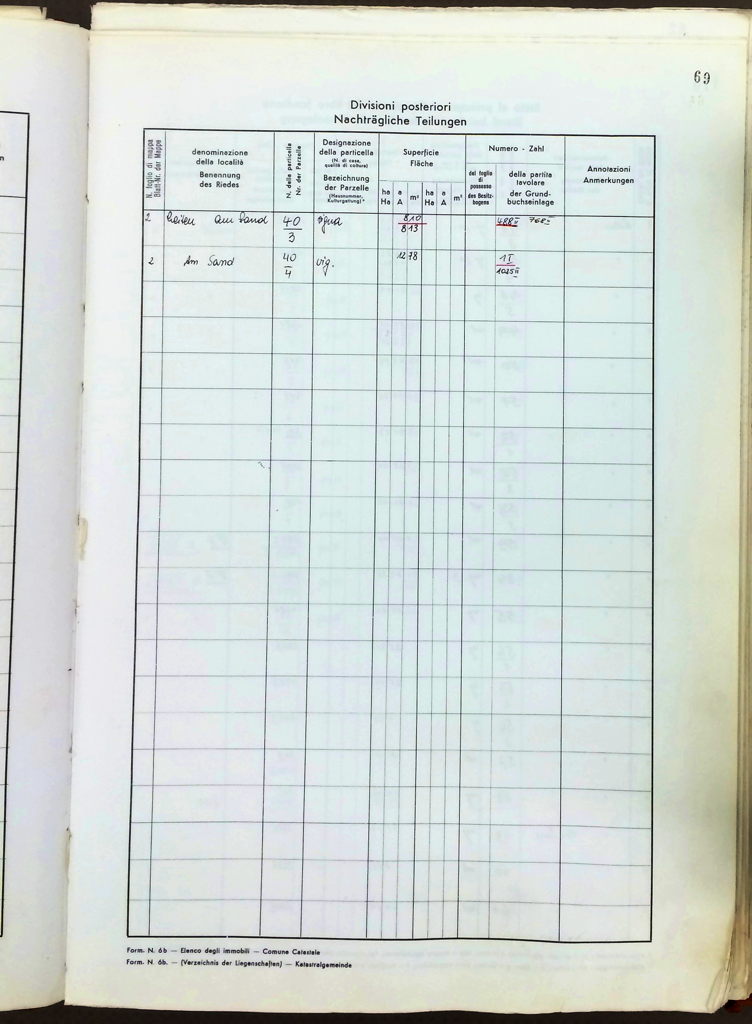 69
Divisioni posteriori
Nachträgliche Teilungen
N. foglio di mappa
Blatt-Nr. der Mappe
denominazione
della località
Benennung
des Riedes
N. della particella
Nr. der Parzelle
Designazione
della particella
(N. di casa,
qualità di coltura)
Bezeichnung
der Parzelle
(Hausnummer,
Kulturgattung)
Superficie
Fläche
ha a m² ha a m²
Ha A Ha A
Numero - Zahl
del foglio
di
possesso
des Besitz-
bogens
della partita
tavolare
der Grund-
buchseinlage
Annotazioni
Anmerkungen
2 Leiten am Sand 40/3 vigna 810 488II 768II
813
2 Am Sand 40/4 vig. 1278 1I
1025II
Form. N. 6b — Elenco degli immobili — Comune Catastale
Form. N. 6b. — (Verzeichnis der Liegenschaften) — Katastralgemeinde